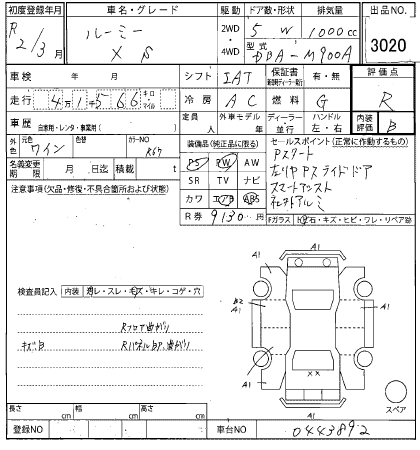 初度登録年月 車名・グレード 駆動 ドア数・形状 排気量 出品NO.
R 2/3月 ルーミー X S 2WD・4WD 5 W 1000cc 3020
型式 DBA-M900A
車検 年 月 シフト IAT 保証書 有・無 評価点
走行 4万1千566 キロ マイル 冷房 AC 燃料 G R
車歴 自家用・レンタ・事業用( ) 定員 人 外車モデル 年 ディーラー 並行 ハンドル 左・右 内装評価 B
外色 元色 ワイン 色替 カラーNO R67 装備品(純正品に限る) セールスポイント(正常に作動するもの)
名義変更期限 月 日迄 積載 t PS PW AW Pスタート
SR TV ナビ 左リヤPスライドドア
注意事項(欠品・修復・不具合箇所および状態) カワ エアB ABS スマートアシスト
R券 9130円 社外アルミ
Fガラス トビ石・キズ・ヒビ・ワレ・リペア跡
A1
A1 A1
検査員記入 内装 ヨゴレ・スレ・キズ・キレ・コゲ・穴
Rフロア曲がり
キズ凹 RパネルBP、曲がり
A1 A1
A1
スペア
長さ cm 幅 cm 高さ cm
登録NO 車台NO 0443892